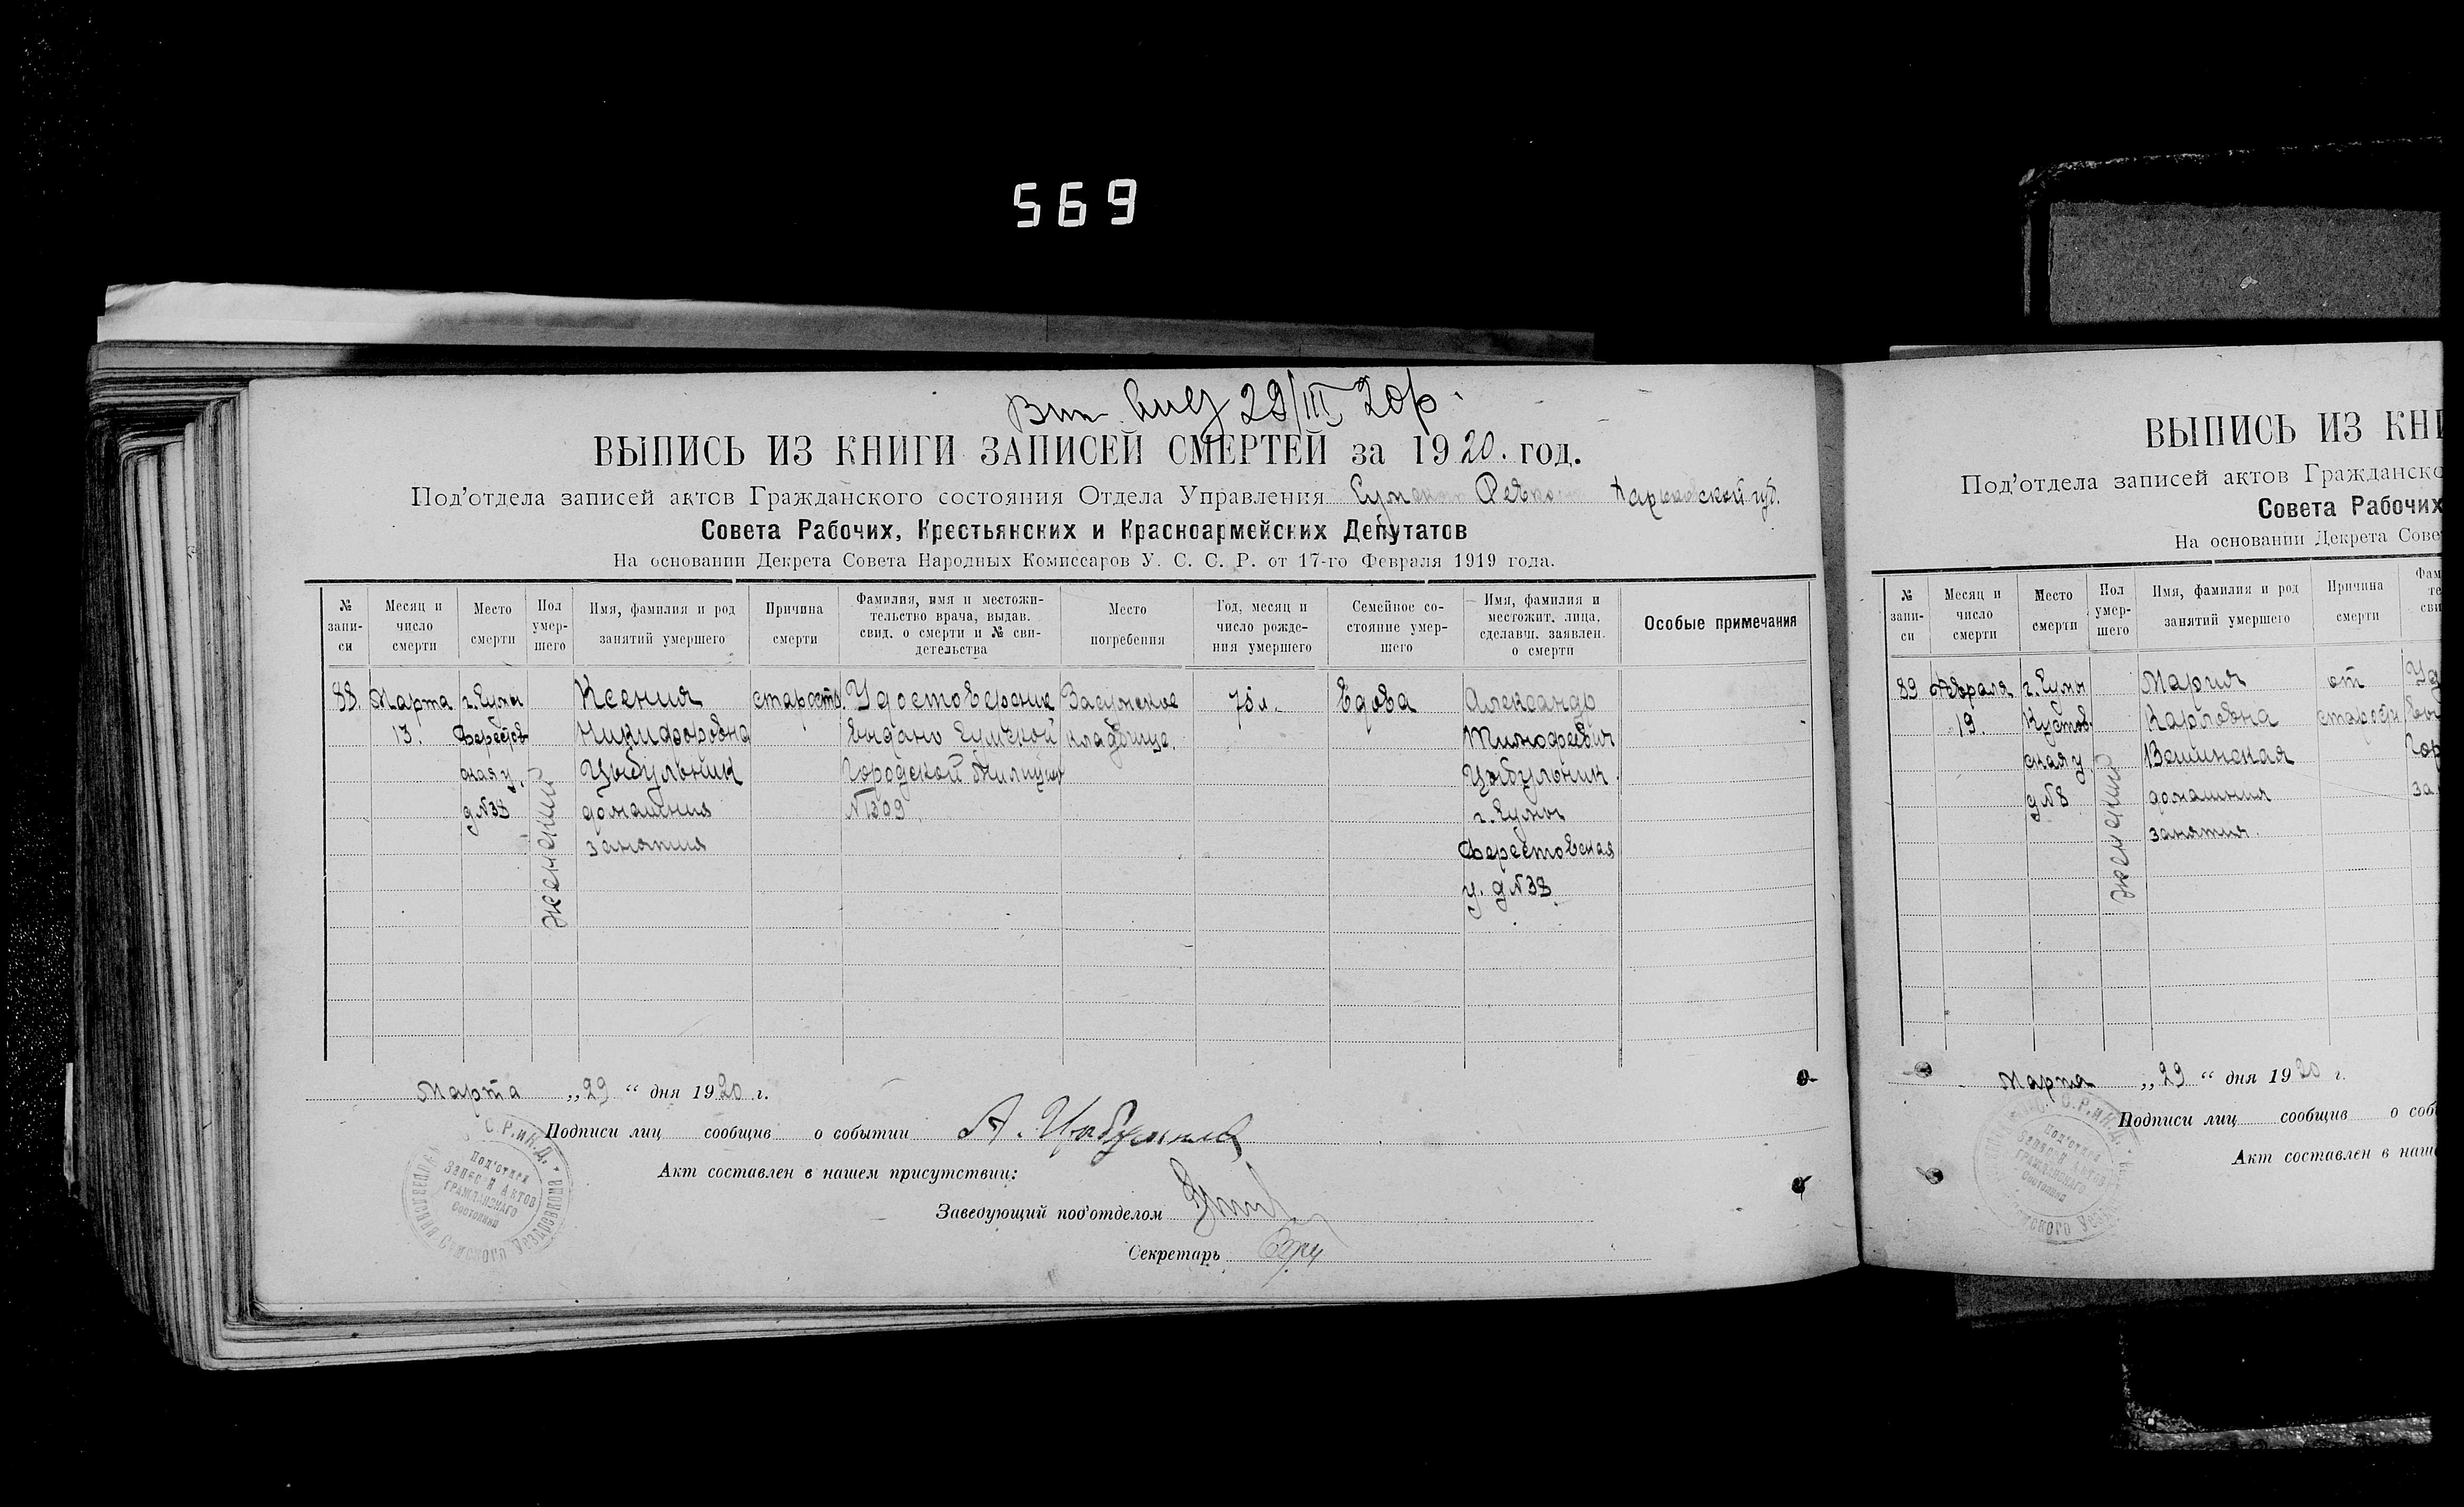 569
Вип. 29/III 20р.
ВЫПИСЬ ИЗ КНИГИ ЗАПИСЕЙ СМЕРТЕЙ за 1920. год.
Под'отдела записей актов Гражданского состояния Отдела Управления Харьковской губ.
Совета Рабочих, Крестьянских и Красноармейских Депутатов
На основании Декрета Совета Народных Комиссаров У. С. С. Р. от 17-го Февраля 1919 года.
№ запи-си
Месяц и число смерти
Место смерти
Пол умер-шего
Имя, фамилия и род занятий умершего
Причина смерти
Фамилия, имя и местожи-тельство врача, выдав. свид. о смерти и № сви-детельства
Место погребения
Год, месяц и число рожде-ния умершего
Семейное со-стояние умер-шего
Имя, фамилия и местожит. лица, сделавш. заявлен. о смерти
Особые примечания
88.
Марта
13.
г. Сумы
ская у.
д №38
женский
Ксения
Никифоровна
Цыбульник
домашния
занятия
старость.
Удостоверение
выдано Сумской
Городской Милицией
№1309
Засумское
кладбище.
75 л.
Вдова
Александр
Тимофеевич
Цыбульник
г. Сумы
у. д №38
Марта „29“ дня 1920 г.
Подписи лиц сообщив о событии А. Цыбульник
Акт составлен в нашем присутствии:
Заведующий под'отделом
Секретарь
С.Р.и К.Д.
Под'отдел
Записей Актов
Гражданскаго
Состояния
Сумского Уездревкома
ВЫПИСЬ ИЗ КНИ
Под'отдела записей актов Гражданско
Совета Рабочих
На основании Декрета Сове
№ запи-си
Месяц и число смерти
Место смерти
Пол умер-шего
Имя, фамилия и род занятий умершего
Причина смерти
Фам
89
Февраля
19.
г. Сумы
Кустов.
ская у.
д №8
женский
Мария
Карловна
домашния
занятия.
от
старости
Уд
Вы
Гор
за
Марта „29“ дня 1920 г.
Подписи лиц сообщив о соб
Акт составлен в наш
С.Р.и К.Д.
Под'отдел
Записей Актов
Гражданскаго
Состояния